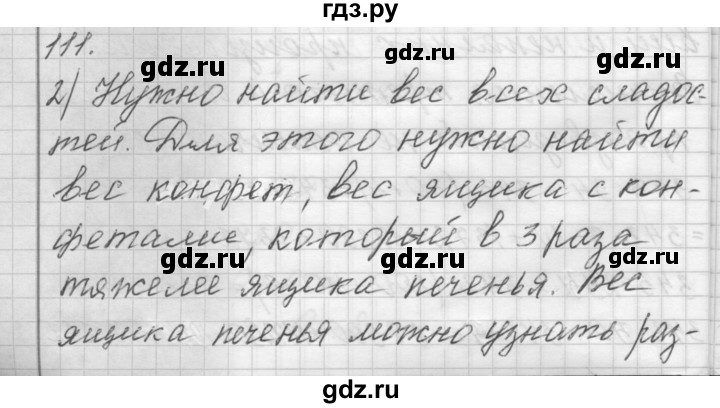 гдз.ру
111.
gdz.ru gdz.ru
2) Нужно найти вес всех сладос-
тей. Для этого нужно найти
gdz.ru gdz.ru
вес конфет, вес ящика с кон-
фетами, который в 3 раза
gdz.ru gdz.ru
тяжелее ящика печенья. Вес
gdz.ru gdz.ru
ящика печенья можно узнать раз-
gdz.ru